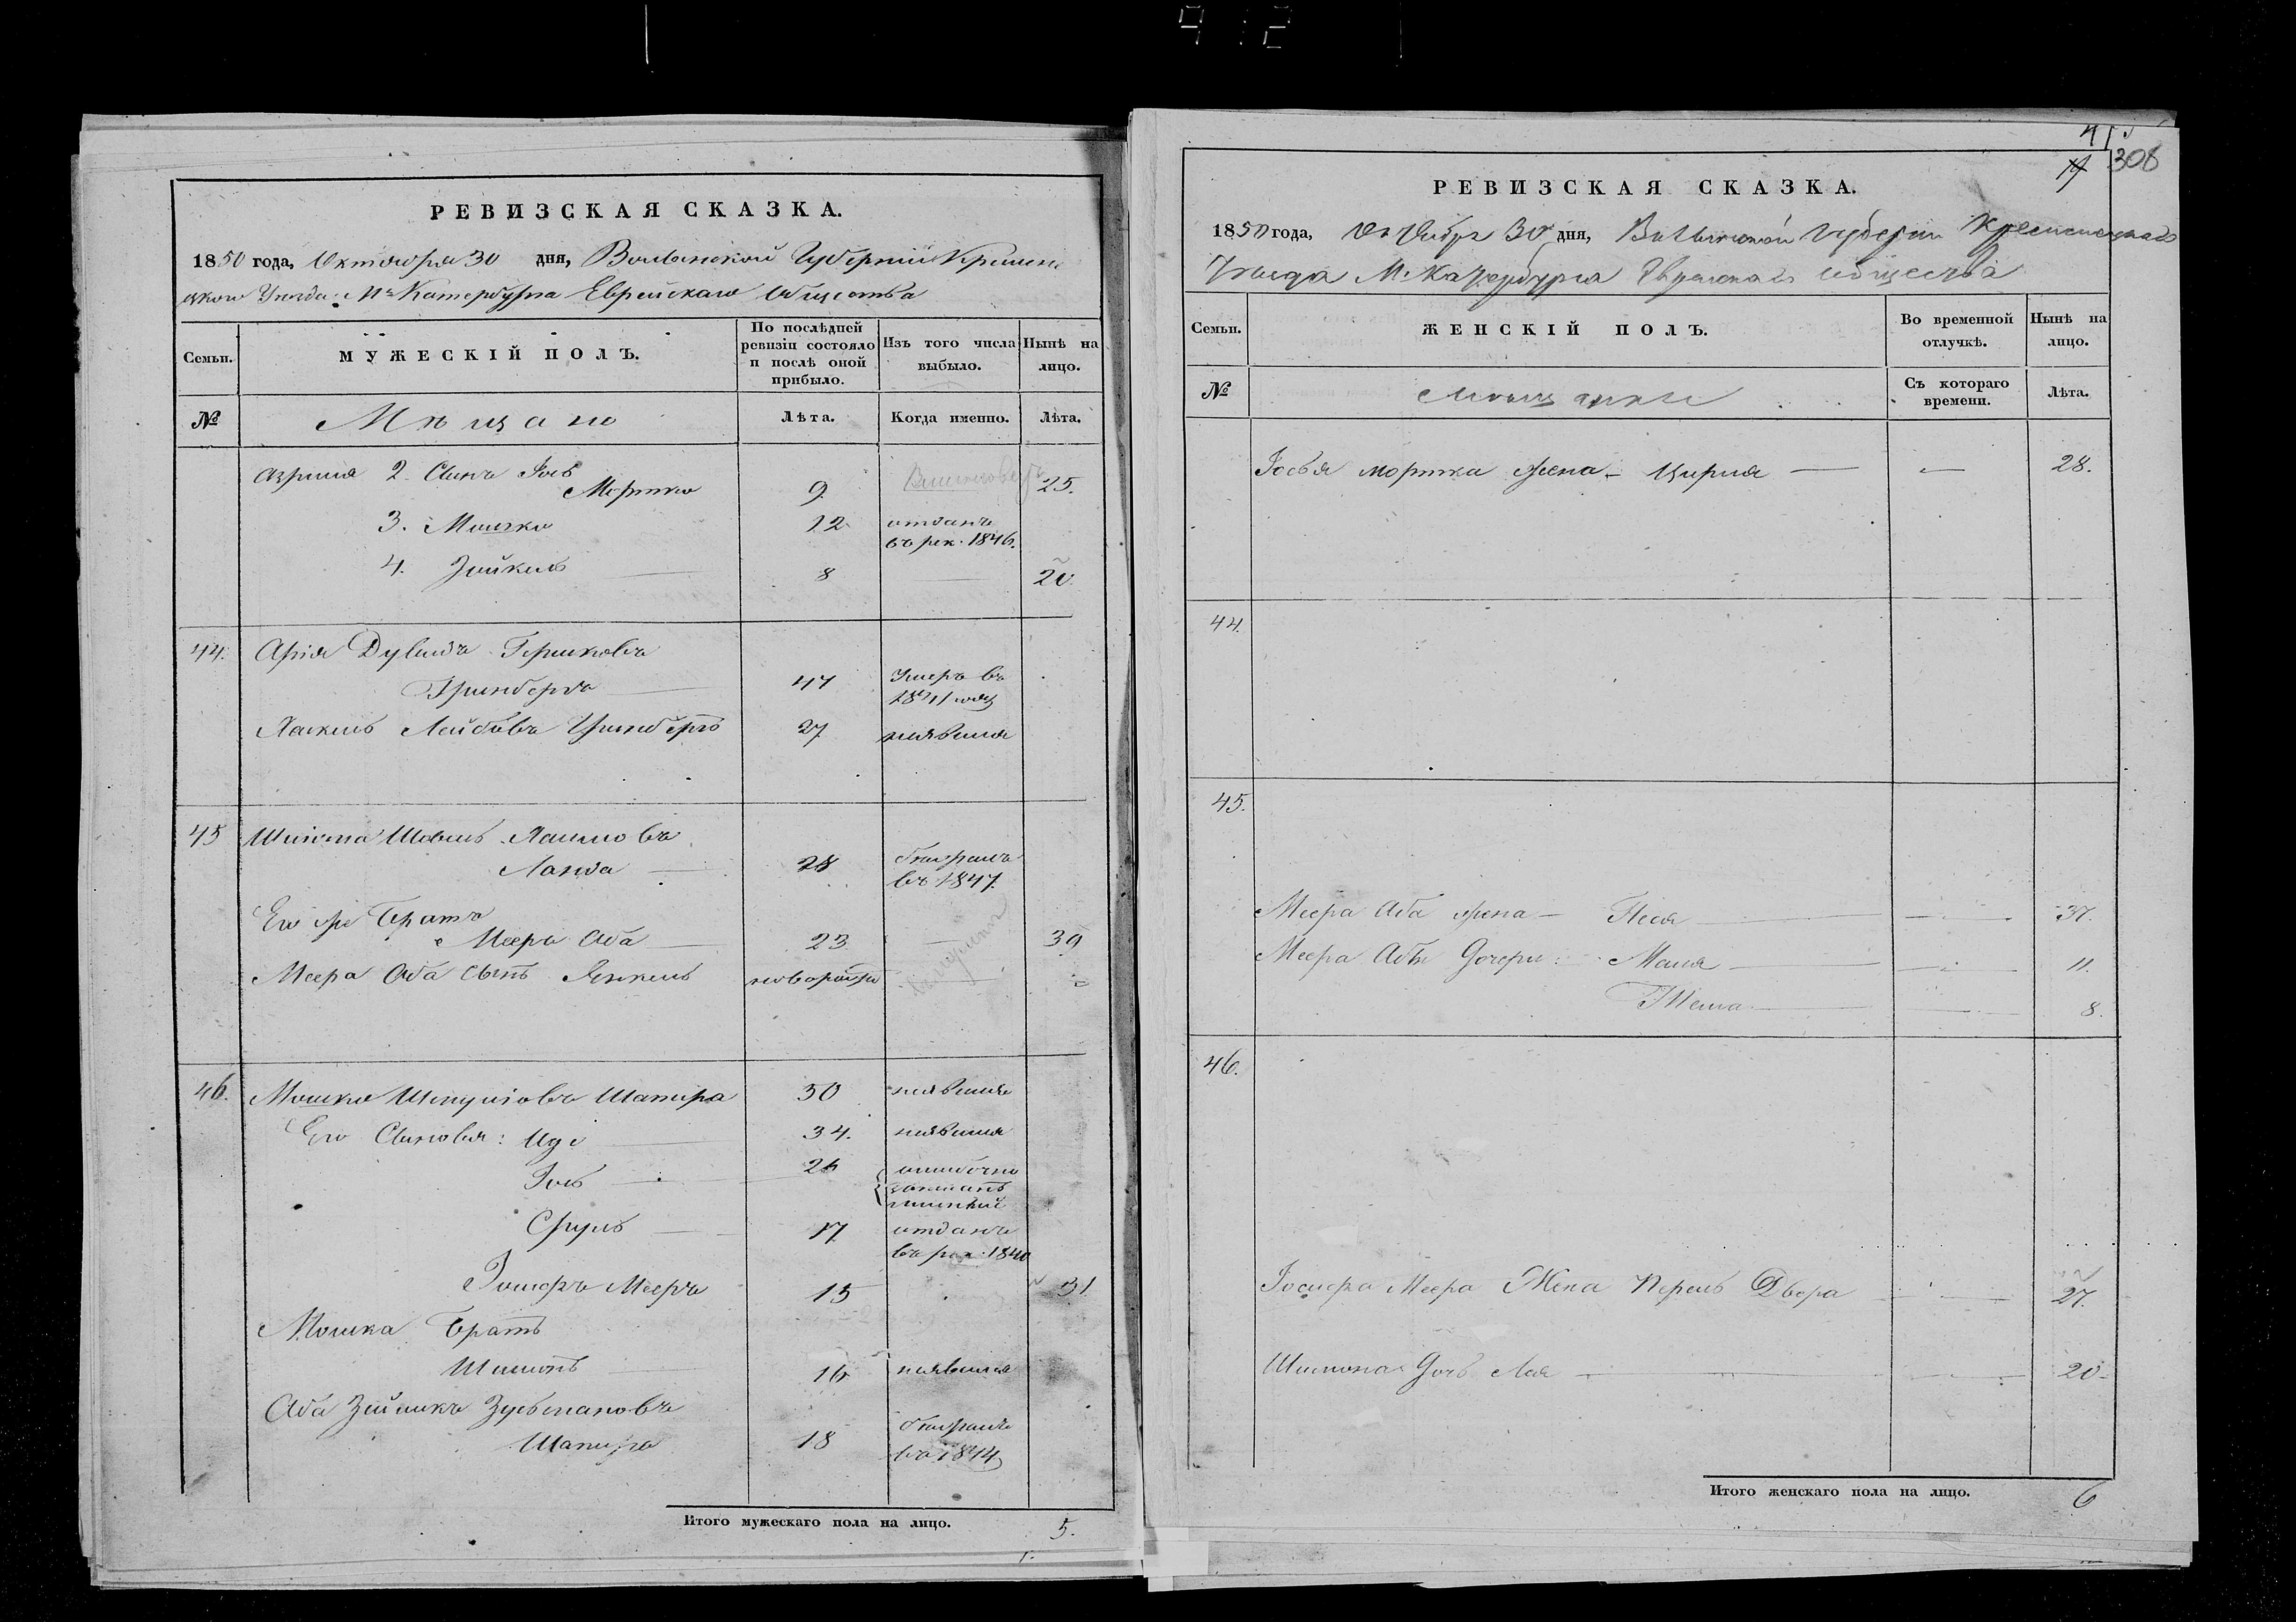 РЕВИЗСКАЯ СКАЗКА.
1850 года, Октября 30 дня, Волынской Губерніи Кременецкого
Уѣзда М. Катербурга Еврейскаго Общества
Семьи.
МУЖЕСКІЙ ПОЛЪ.
По послѣдней ревизіи состояло и послѣ оной прибыло.
Изъ того числа выбыло.
Нынѣ на лицо.
№
Мѣщане
Лѣта.
Когда именно.
Лѣта.
2. Сынъ Іось
Мортко 9 25.
3. Мошко 12 отданъ
въ рек. 1846.
4. Зейкель 8 20
44. Арія Дувидъ Гершковъ
Гринбергъ 47 Умеръ въ
1841 году
Хаскель Лейбовъ Гринбергъ 27 неявился
45 Шовель
Ланда 28 Умеръ
въ 1847.
Его же Братъ
Мееръ Аба 23 — 39
Меера Аба сынъ Янкель новорожд —
46. Мошко Шапира 50 неявился
Его Сыновья: Иде 34. неявился
Іось 26 ошибочно
Сруль 17 отданъ
въ рек. 1840
Іошеръ Мееръ 15 31
Мошка Братъ
Шимонъ 16 неявился
Аба Зусьмановъ
Шапира 18
въ 1844
Итого мужескаго пола на лицо. 5.
308
РЕВИЗСКАЯ СКАЗКА.
1850 года, Октября 30 дня, Волынской Губерніи Кременецкаго
Уѣзда М. Катербурга Еврейскаго Общества
Семьи.
ЖЕНСКІЙ ПОЛЪ.
Во временной отлучкѣ.
Нынѣ на лицо.
№
Мѣщанки
Съ котораго времени.
Лѣта.
Іосья Мортка жена — Цирля — — 28.
44.
45.
Меера Аба жена — Песя — — 37.
Меера Абы Дочери: Маля — — 11.
— — 8.
46.
Меера Жена Перель Двера — 27.
Шимона Дочь Лея — — 20
Итого женскаго пола на лицо. 6